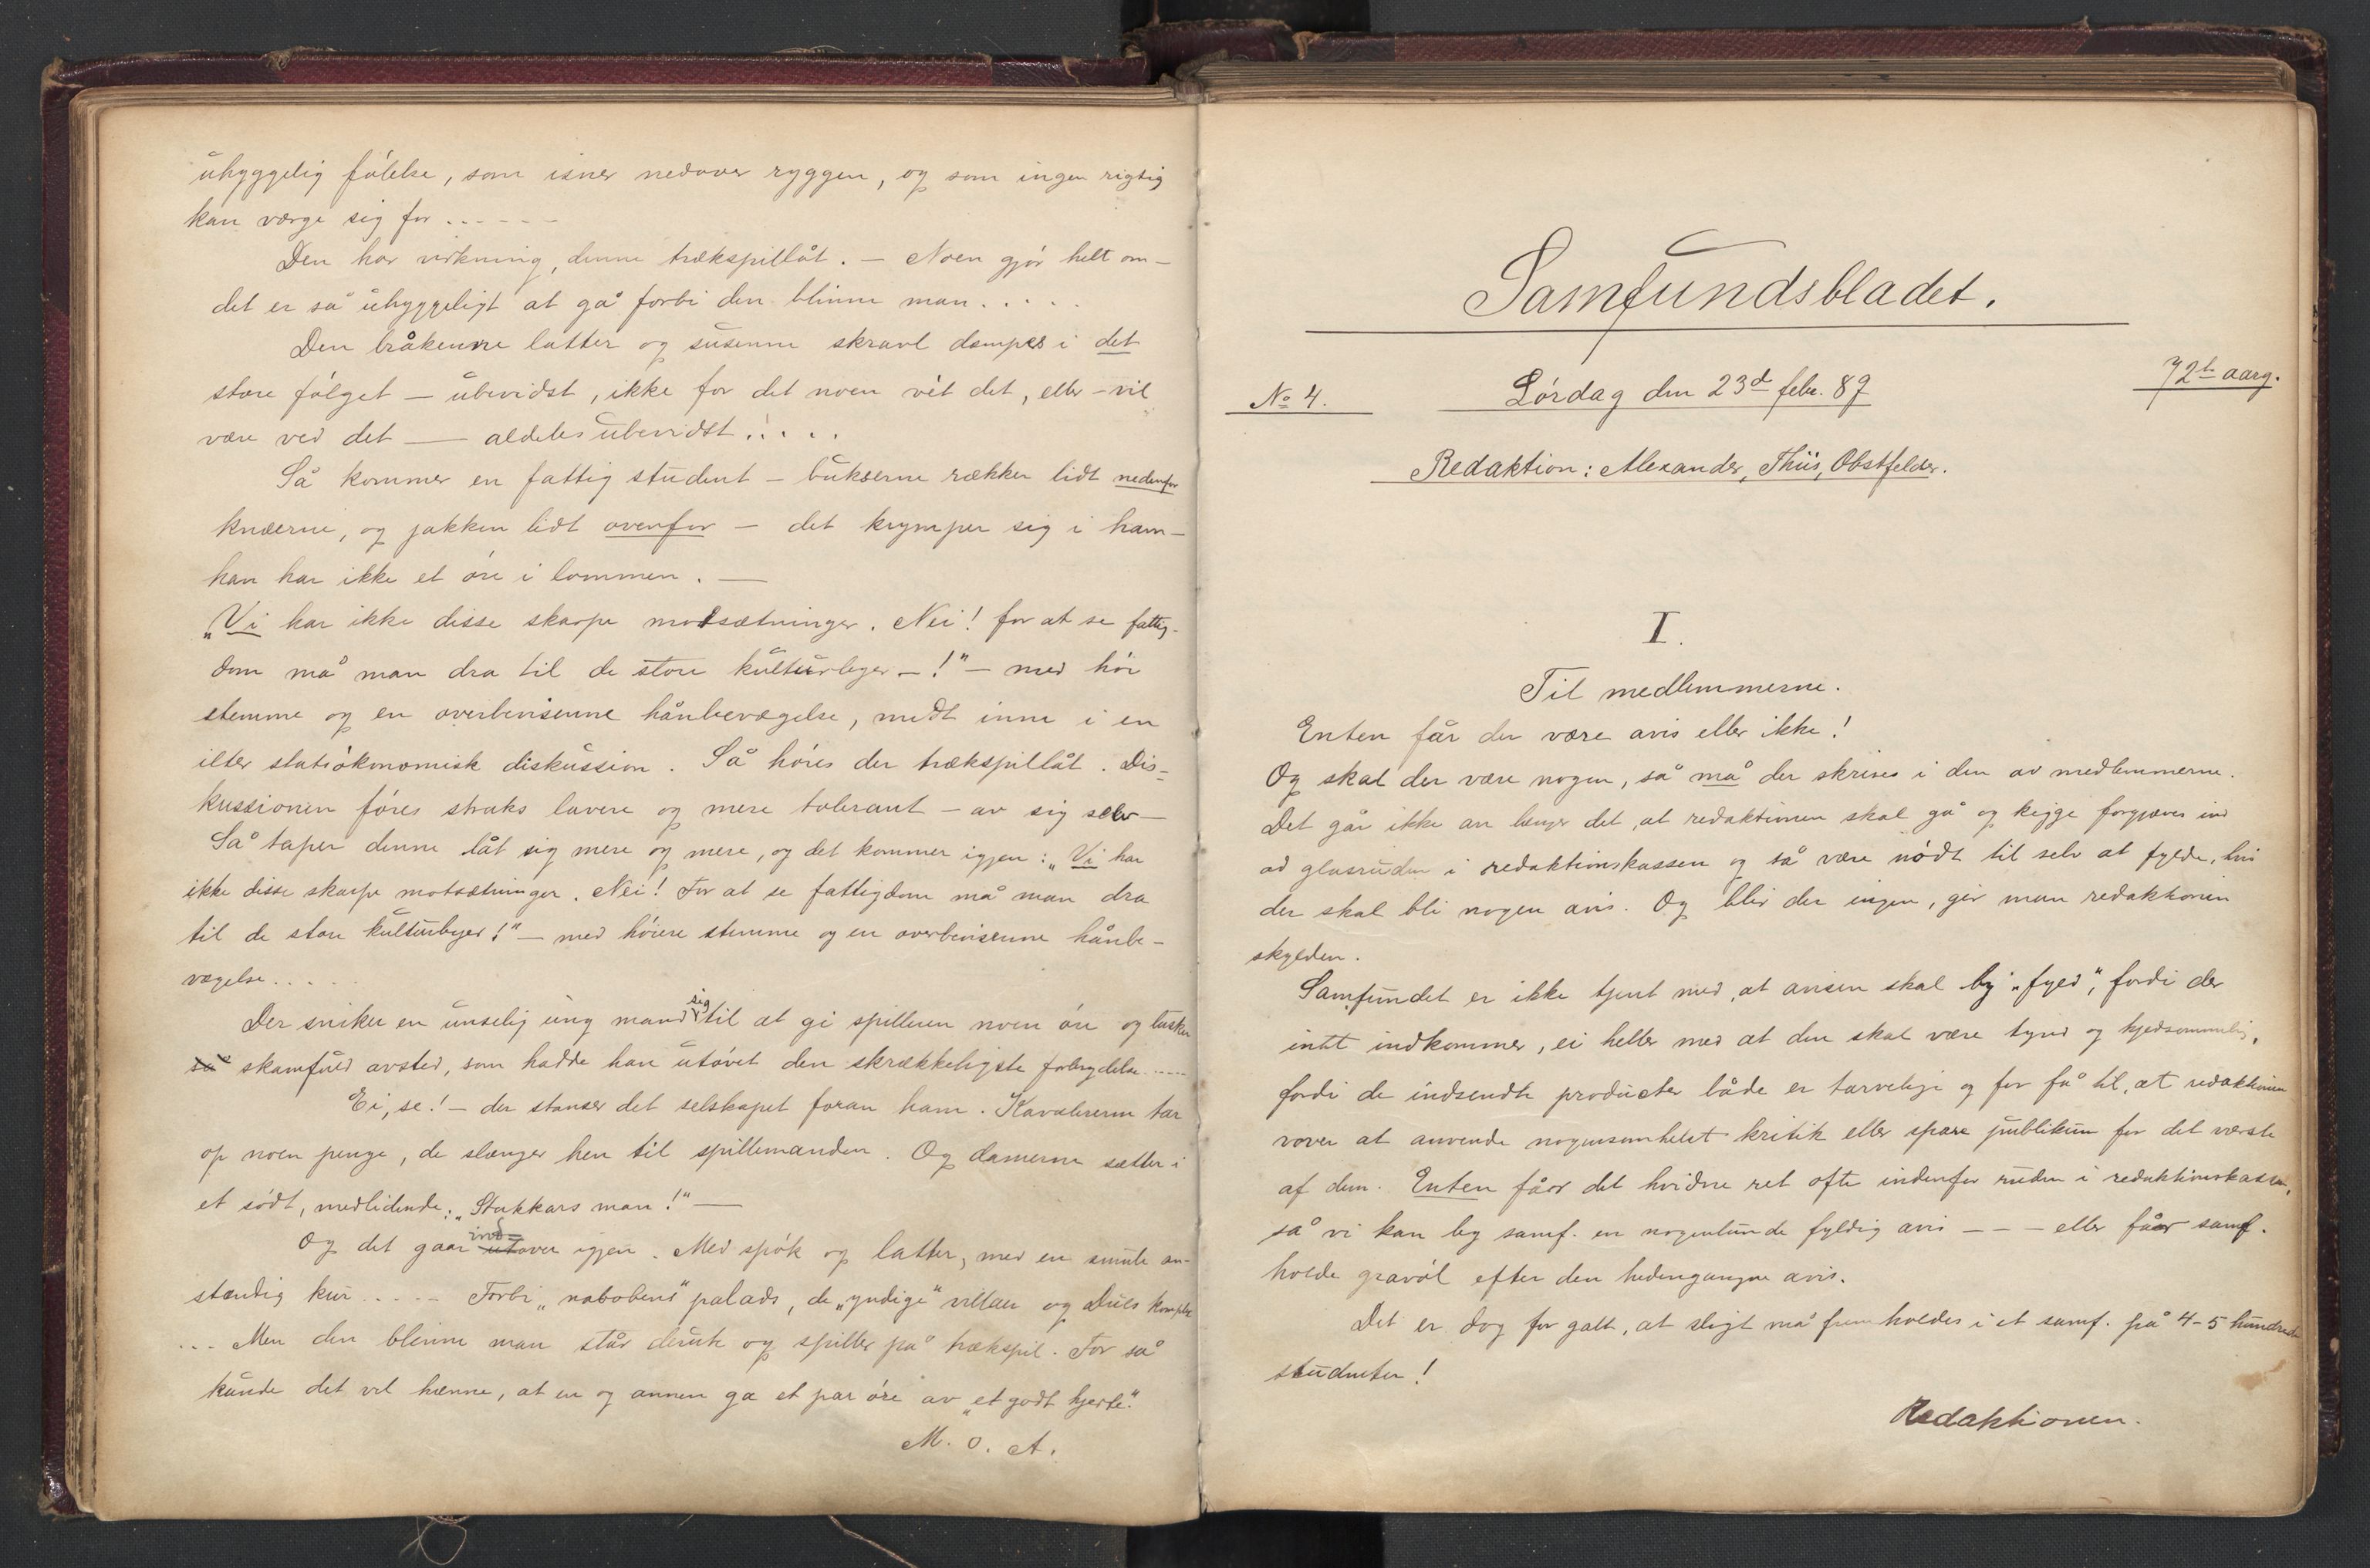 uhyggelig følelse, som isner nedover ryggen, og som ingen rigtig
kan værge sig for ......
Den har virkning, denne trækspillåt. – Noen gjør helt om –
det er så uhyggeligt at gå forbi den blinne man .....
Den bråkenne latter og susenne skravl dempes i det
store følget – ubevidst, ikke for det noen vét det, eller – vil
være ved det — aldeles ubevidst .....
Så kommer en fattig student – bukserne rækker lidt nedenfor
knæerne, og jakken lidt ovenfor – det krymper sig i ham –
han har ikke et øre i lommen. —
„Vi har ikke disse skarpe motsætninger. Nei! for at se fattig-
dom må man dra til de store kulturbyer – !" – med høi
stemme og en overbevisenne hånbevægelse, midt inne i en
ilter statsøkonomisk diskussion. Så høres der trækspillåt. Dis-
kussionen føres straks lavere og mere tolerant – av sig selv –
Så taper denne låt sig mere og mere, og det kommer igjen: „Vi har
ikke disse skarpe motsætninger. Nei! For at se fattigdom må man dra
til de store kulturbyer!" – med høiere stemme og en overbevisenne hånbe-
vægelse .....
Der sniker en unselig ung mand sig til at gi spilleren noen øre og lusker
så skamfuld avsted, som hadde han utøvet den skrækkeligste forbrydelse .....
Ei, se! – der stanser det selskapet foran ham. Kavalererne tar
op noen penge, de slænger hen til spillemanden. Og damerne sætter i
et sødt, medlidende: „Stakkars man!" —
Og det gaar ind- utover igjen. Med spøk og latter, med en smule an-
stændig kur ..... Forbi „nabobens" palads, de „yndige" villaer og Dues kompleks
... Men den blinne man står denne og spiller på trækspil. For så
kunde det vel hænne, at en og annen ga et par øre av „et godt hjerte."
M. O. A.
Samfundsbladet.
No 4.
Lørdag den 23d febr. 89
72de aarg.
Redaktion: Alexander, Thiis, Obstfelder.
I.
Til medlemmerne.
Enten får der være avis eller ikke!
Og skal der være nogen, så må der skrives i den av medlemmerne.
Det går ikke an længer det, at redaktionen skal gå og kigge forgjæves ind
ad glasruden i redaktionskassen og så være nødt til selv at fylde, hvis
der skal bli nogen avis. Og blir der ingen, gir man redaktionen
skylden.
Samfundet er ikke tjent med, at avisen skal by „fyld", fordi der
intet indkommer, ei heller med at den skal være tynd og kjedsommelig,
fordi de indsendte producter både er tarvelige og for få til, at redaktionen
vover at anvende nogensomhelst kritik eller spare publikum for det værste
af dem. Enten får det hvidne ret ofte indenfor ruden i redaktionskassen,
så vi kan by samf. en nogenlunde fyldig avis – – – eller får samf.
holde gravøl efter den hedengangne avis.
Det er dog for galt, at sligt må fremholdes i et samf. på 4–5 hundrede
studenter!
Redaktionen.